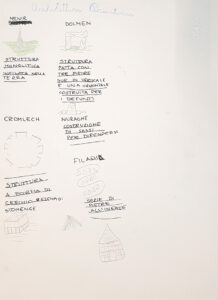 MENIR
DOLMEN
STRUTTURA
MONOLITICA
NELLA
TERRA
STRUTTURA
FATTA CON
TRE PIETRE
DUE IN VERTICALE
E UNA
COSTRUITA PER
I DEFUNTI
CROMLECH
NURAGHE
COSTRUZIONE
DI SASSI
PER DIFENDERSI
FILARI
STRUTTURA
A FORMA DI
CERCHIO
SERIE DI
PIETRE
ALLINEATE